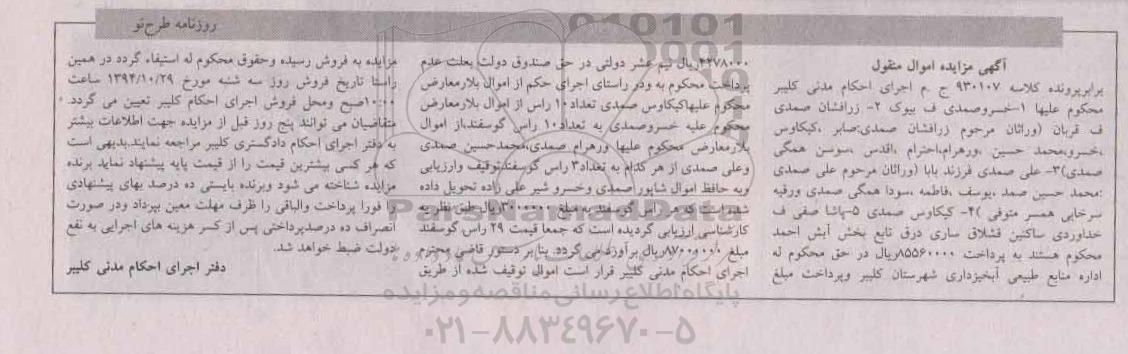 روزنامه طرح نو
آگهی مزایده اموال منقول
برابرپرونده کلاسه ۹۳۰۱۰۷ ج .م اجرای احکام مدنی کلیبر
محکوم علیها ۱-خسروصمدی ف بیوک ۲- زرافشان صمدی
ف قربان (وراثان مرحوم زرافشان صمدی:صابر ،کیکاوس
،خسرو،محمد حسین ،ورهرام،احترام ،اقدس ،سوسن همگی
صمدی)۳- علی صمدی فرزند بابا (وراثان مرحوم علی صمدی
:محمد حسین صمد ،یوسف ،فاطمه ،سودا همگی صمدی ورقیه
سرخابی همسر متوفی )۴- کیکاوس صمدی ۵-پاشا صفی ف
خداوردی ساکنین قشلاق ساری درق تابع بخش آبش احمد
محکوم هستند به پرداخت ۸۵۵۶۰۰۰۰ریال در حق محکوم له
اداره منابع طبیعی آبخیزداری شهرستان کلیبر وپرداخت مبلغ
۴۲۷۸۰۰۰ریال نیم عشر دولتی در حق صندوق دولت بعلت عدم
پرداخت محکوم به ودر راستای اجرای حکم از اموال بلارمعارض
محکوم علیهاکیکاوس صمدی تعداد ۱۰ راس از اموال بلارمعارض
محکوم علیه خسروصمدی به تعداد۱۰ راس گوسفند،از اموال
بلارمعارض محکوم علیها ورهرام صمدی،محمدحسین صمدی
وعلی صمدی از هر کدام به تعداد۳ راس گوسفندتوقیف وارزیابی
وبه حافظ اموال شاپور صمدی وخسرو شیر علی زاده تحویل داده
شده است که هر راس گوسفند به مبلغ ۳۰۰۰۰۰۰ریال طبق نظر به
کارشناسی ارزیابی گردیده است که جمعا قیمت ۲۹ راس گوسفند
مبلغ ۸۷۰۰۰۰۰۰ریال برآورد می گردد بنا بر دستور قاضی محترم
اجرای احکام مدنی کلیبر قرار است اموال توقیف شده از طریق
مزایده به فروش رسیده وحقوق محکوم له استیفاء گردد در همین
راستا تاریخ فروش روز سه شنبه مورخ ۱۳۹۴/۱۰/۲۹ ساعت
۱۰:۰۰صبح ومحل فروش اجرای احکام کلیبر تعیین می گردد.
متقاضیان می توانند پنج روز قبل از مزایده جهت اطلاعات بیشتر
به دفتر اجرای احکام دادگستری کلیبر مراجعه نمایند.بدیهی است
که هر کسی بیشترین قیمت را از قیمت پایه پیشنهاد نماید برنده
مزایده شناخته می شود وبرنده بایستی ده درصد بهای پیشنهادی
را فورا پرداخت والباقی را ظرف مهلت معین بپردازد ودر صورت
انصراف ده درصدپرداختی پس از کسر هزینه های اجرایی به نفع
دولت ضبط خواهد شد.
دفتر اجرای احکام مدنی کلیبر
ParsNamadData
پایگاه اطلاع رسانی مناقصه و مزایده
۰۲۱-۸۸۳۴۹۶۷۰-۵